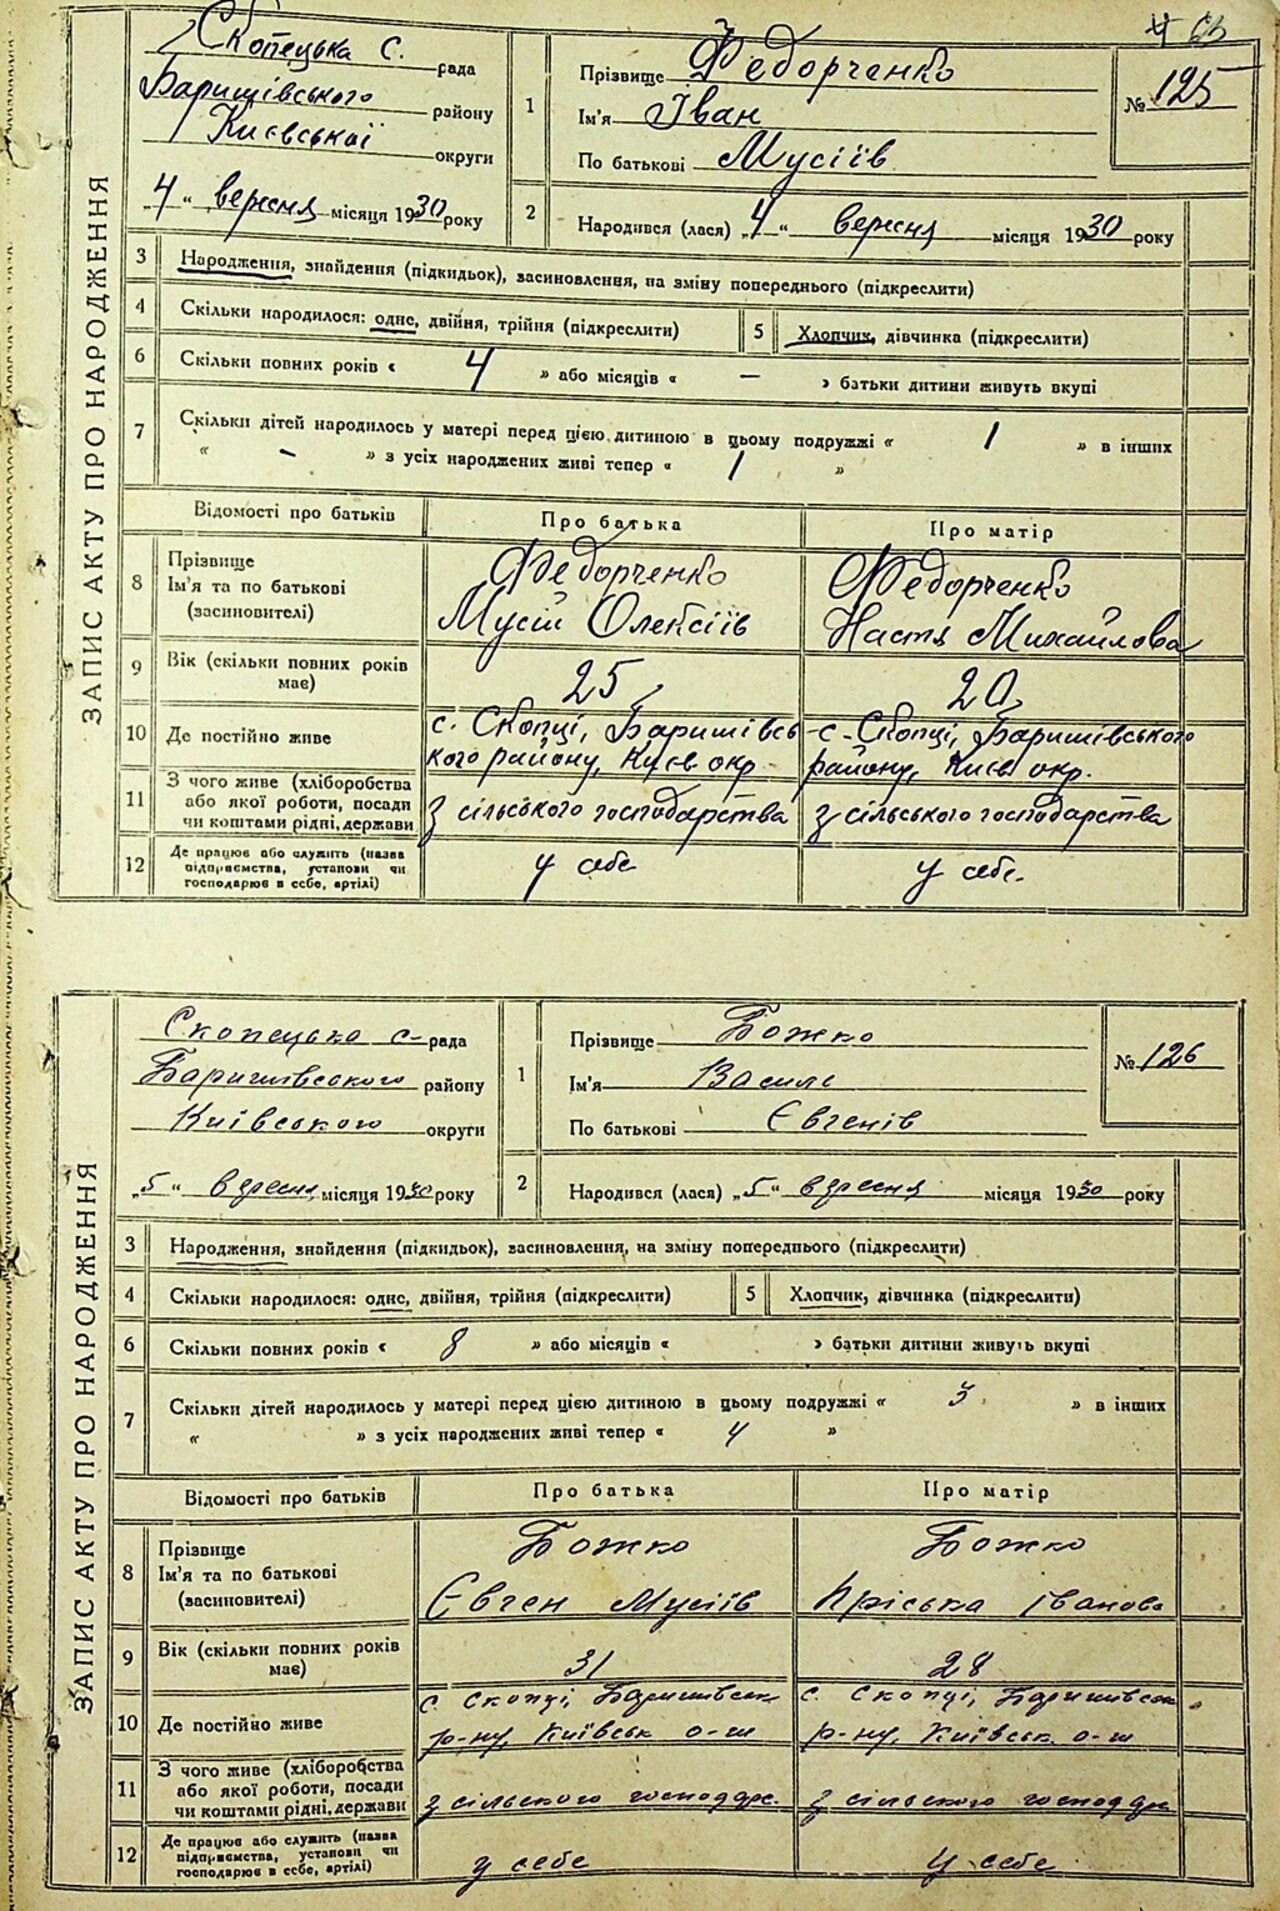 65
ЗАПИС АКТУ ПРО НАРОДЖЕННЯ
Скопецька с. рада
Баришівського району
Києвської округи
„4“ вересня місяця 1930 року
1
Прізвище Федорченко
Ім'я Іван
По батькові Мусіїв
№ 125
2 Народився (лася) „4“ вересня місяця 1930 року
3 Народження, знайдення (підкидьок), засиновлення, на зміну попереднього (підкреслити)
4 Скільки народилося: одне, двійня, трійня (підкреслити) 5 Хлопчик, дівчинка (підкреслити)
6 Скільки повних років « 4 » або місяців « — » батьки дитини живуть вкупі
7 Скільки дітей народилось у матері перед цією дитиною в цьому подружжі « 1 » в інших
« – » з усіх народжених живі тепер « 1 »
Відомості про батьків Про батька Про матір
8 Прізвище Федорченко Федорченко
Ім'я та по батькові Мусій Олексіїв Настя Михайлова
(засиновителі)
9 Вік (скільки повних років має) 25 20
10 Де постійно живе с. Скопці, Баришівсь с. Скопці, Баришівського
кого району, Києв окр. району, Києв окр.
11 З чого живе (хліборобства
або якої роботи, посади з сільського господарства з сільського господарства
чи коштами рідні, держави
12 Де працює або служить (назва
підприємства, установи чи у себе у себе.
господарює в себе, артілі)
ЗАПИС АКТУ ПРО НАРОДЖЕННЯ
Скопецька с- рада
Баришівського району
Київського округи
„5“ вересня місяця 1930 року
1
Прізвище Божко
Ім'я Василь
По батькові Євгенів
№ 126
2 Народився (лася) „5“ вересня місяця 1930 року
3 Народження, знайдення (підкидьок), засиновлення, на зміну попереднього (підкреслити)
4 Скільки народилося: одне, двійня, трійня (підкреслити) 5 Хлопчик, дівчинка (підкреслити)
6 Скільки повних років « 8 » або місяців « » батьки дитини живуть вкупі
7 Скільки дітей народилось у матері перед цією дитиною в цьому подружжі « 3 » в інших
« » з усіх народжених живі тепер « 4 »
Відомості про батьків Про батька Про матір
8 Прізвище Божко Божко
Ім'я та по батькові Євген Мусіїв Пріська Іванова
(засиновителі)
9 Вік (скільки повних років має) 31 28
10 Де постійно живе с. Скопці, Баришівськ с. Скопці, Баришівськ
р-ну, Київськ о-ги р-ну, Київськ о-ги
11 З чого живе (хліборобства
або якої роботи, посади з сільського господарс. з сільського господарс
чи коштами рідні, держави
12 Де працює або служить (назва
підприємства, установи чи у себе у себе
господарює в себе, артілі)